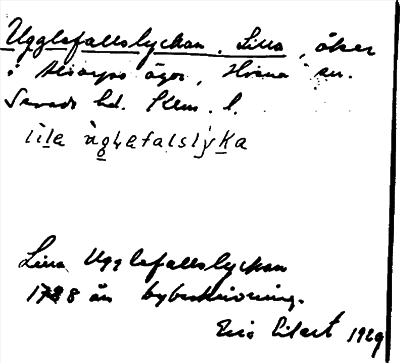 Ugglefallslyckan, Lilla, åker
i Alsarps ägor, Hvena sn.
Sevede hd. Kalm. l.
lila ùglefalslyka
Lilla Ugglefallslyckan
1788 års bybeskrivning.
Eric Eilert 1929